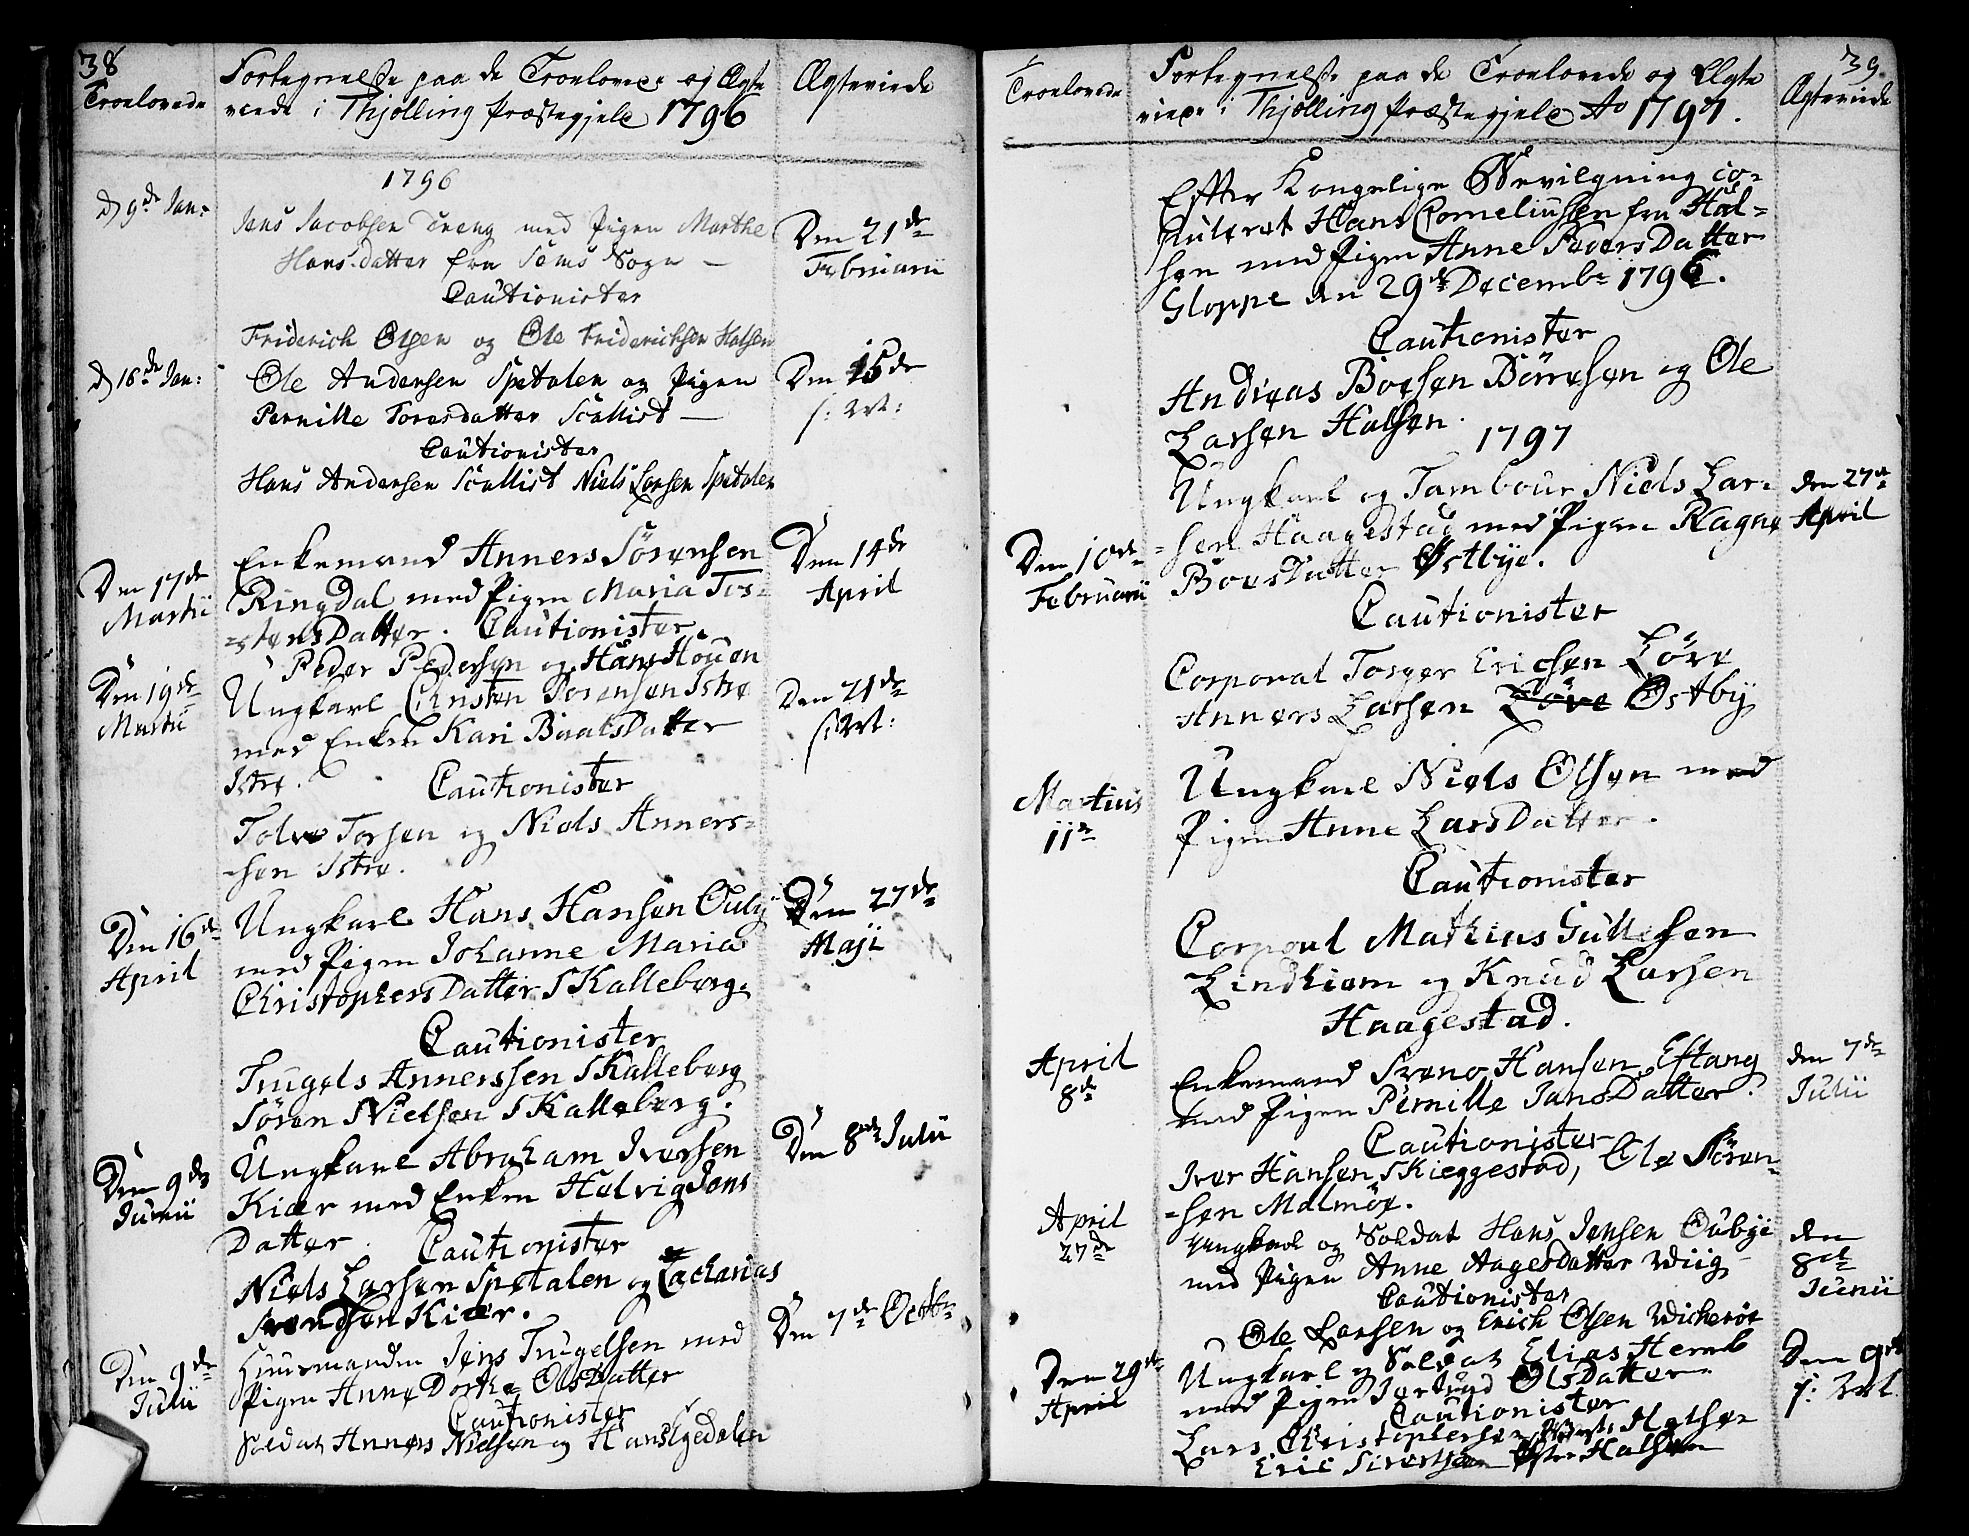 38
Troelovede
Fortegnelse paa de Troelovede og Ægte
viede i Thjölling Præstegield 1796
Ægteviede
1796
d 9de Jan:
Jens Jacobsen Treng med Pigen Marthe
Hans datter fra Sems Sogn —
Den 21de
Februarii
Cautionister
Friderich Olsen og Ole Friderichsen Halsen
d 16de Jan:
Ole Andersen Spetalen og Pigen
Pernille Toresdatter Scallist —
Den 15de
Cautionister
Hans Andersen Scallist Niels Larsen Spetalen
Den 17de
Martii
Enkemand Anners Sörensen
Ringdal med Pigen Maria Tos-
=stensDatter. Cautionister
Peder Pedersen og Hans Houen
Den 14de
April
Den 19de
Martii
Ungkarl Christen Sorensen Istre
med Enken Kari BaalsDatter
Istre.
Den 21de
Cautionister
Tolve Torsen og Niels Anners-
-sen Istre.
Den 16de
April
Ungkarl Hans Hansen Ouby
med Pigen Johanne Maria
ChristophersDatter SKalleberg.
Den 27de
Maji
Cautionister
Trugels Annerssen SKalleberg
Sören Nielsen SKalleberg.
Den 9de
Junii
Ungkarl Abraham Iversen
Kiær med Enken Helvig Jens
Datter.
Den 8de Julii
Cautionister
Niels Larsen Spetalen og Zacharias
Svendsen Kiær.
Den 9de
Julii
Huusmanden Jens Trugelsen med
Pigen Anne Dorthe OlsDatter
Den 7de Octb
Cautionister
Soldat Anners Nielsen og Hans Egedalen
39.
Troelovede
Fortegnelse paa de Troelovede og Ægte
viede i Thjölling Præstegield Ao 1797.
Ægteviede
Efter Kongelige Bevilgning co-
puleret Hans Corneliussen fra Hal-
sen med Pigen Anne PedersDatter
Gloppe den 29de Decemb. 1796.
Cautionister
Andreas Boesen Börresen og Ole
Larsen Halsen.
1797
Den 10de
Februarii
Ungkarl og Tambour Niels Lar-
-sen Haagestad med Pigen Ragne
BoesDatter Østbye.
den 27de
April
Cautionister
Corporal Torger Ericsen Löve
Anners Larsen Löve Østby
Martius
11te
Ungkarl Niels Olsen med
Pigen Anne LarsDatter.
Cautionister
Corporal Mathias Gullicsen
Lindhiem og Knud Larsen
Haagestad.
April
8de
Enkemand Svend Hansen Eftang
med Pigen Pernille JansDatter.
den 7de
Julii
Cautionister
Iver Hansen SKieggestad, Ole Sören-
-sen Malmöe.
April
27de
Ungkarl og Soldat Hans Jensen Oubye
med Pigen Anne Aagesdatter Wiig
den
8de
Junii
Cautionister
Ole Larsen og Erich Olsen Wicheröe
Den 29de
April
Ungkarl og Soldat Elias Hemb
med Pigen Jertrud OlsDatter
Den 9de
Cautionister
Lars Christophersen Halsen
Eric Sivertsen Østre Halsen